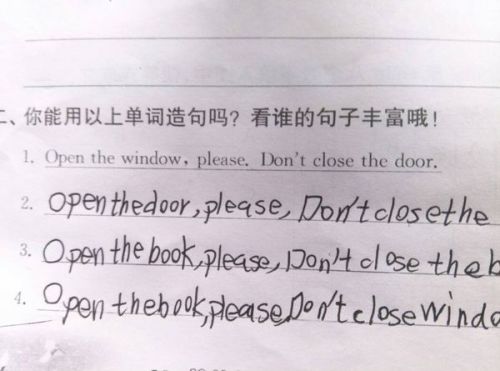 二、你能用以上单词造句吗？看谁的句子丰富哦！
1. Open the window, please. Don't close the door.
2. Open the door, please, Don't close the
3. Open the book, please, Don't close the b
4. Open the book, please, Don't close Windo